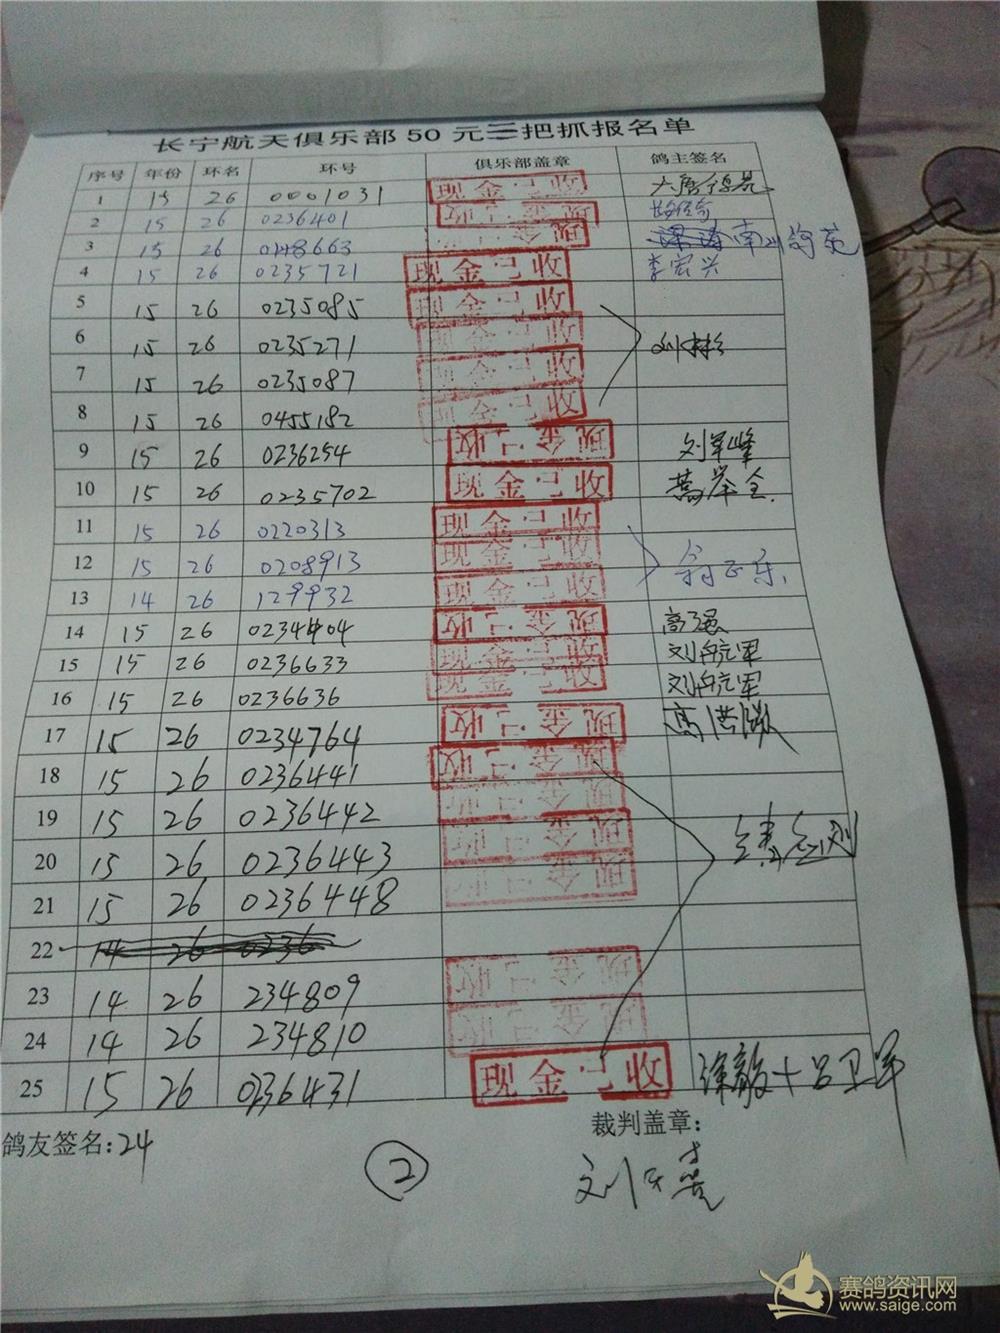 长宁航天俱乐部50元三把抓报名单
序号 年份 环名 环号 俱乐部盖章 鸽主签名
1 15 26 0001031 现金已收
2 15 26 0236401 现金已收
3 15 26 0148663 现金已收
4 15 26 0235721 现金已收 李宏兴
5 15 26 0235085 现金已收
6 15 26 0235271 现金已收 刘彬
7 15 26 0235087 现金已收
8 15 26 0455182 现金已收
9 15 26 0236254 现金已收 刘军峰
10 15 26 0235702 现金已收
11 15 26 0220313 现金已收
12 15 26 0208913 现金已收 翁正东
13 14 26 129932 现金已收
14 15 26 0234404 现金已收 高强
15 15 26 0236633 现金已收 刘航军
16 15 26 0236636 现金已收 刘航军
17 15 26 0234764 现金已收
18 15 26 0236441 现金已收
19 15 26 0236442 现金已收
20 15 26 0236443 现金已收
21 15 26 0236448 现金已收
22 14 26 0236
23 14 26 234809 现金已收
24 14 26 234810 现金已收
25 15 26 0236431 现金已收 徐毅+吕卫军
鸽友签名:24 裁判盖章:
2
赛鸽资讯网
www.saige.com